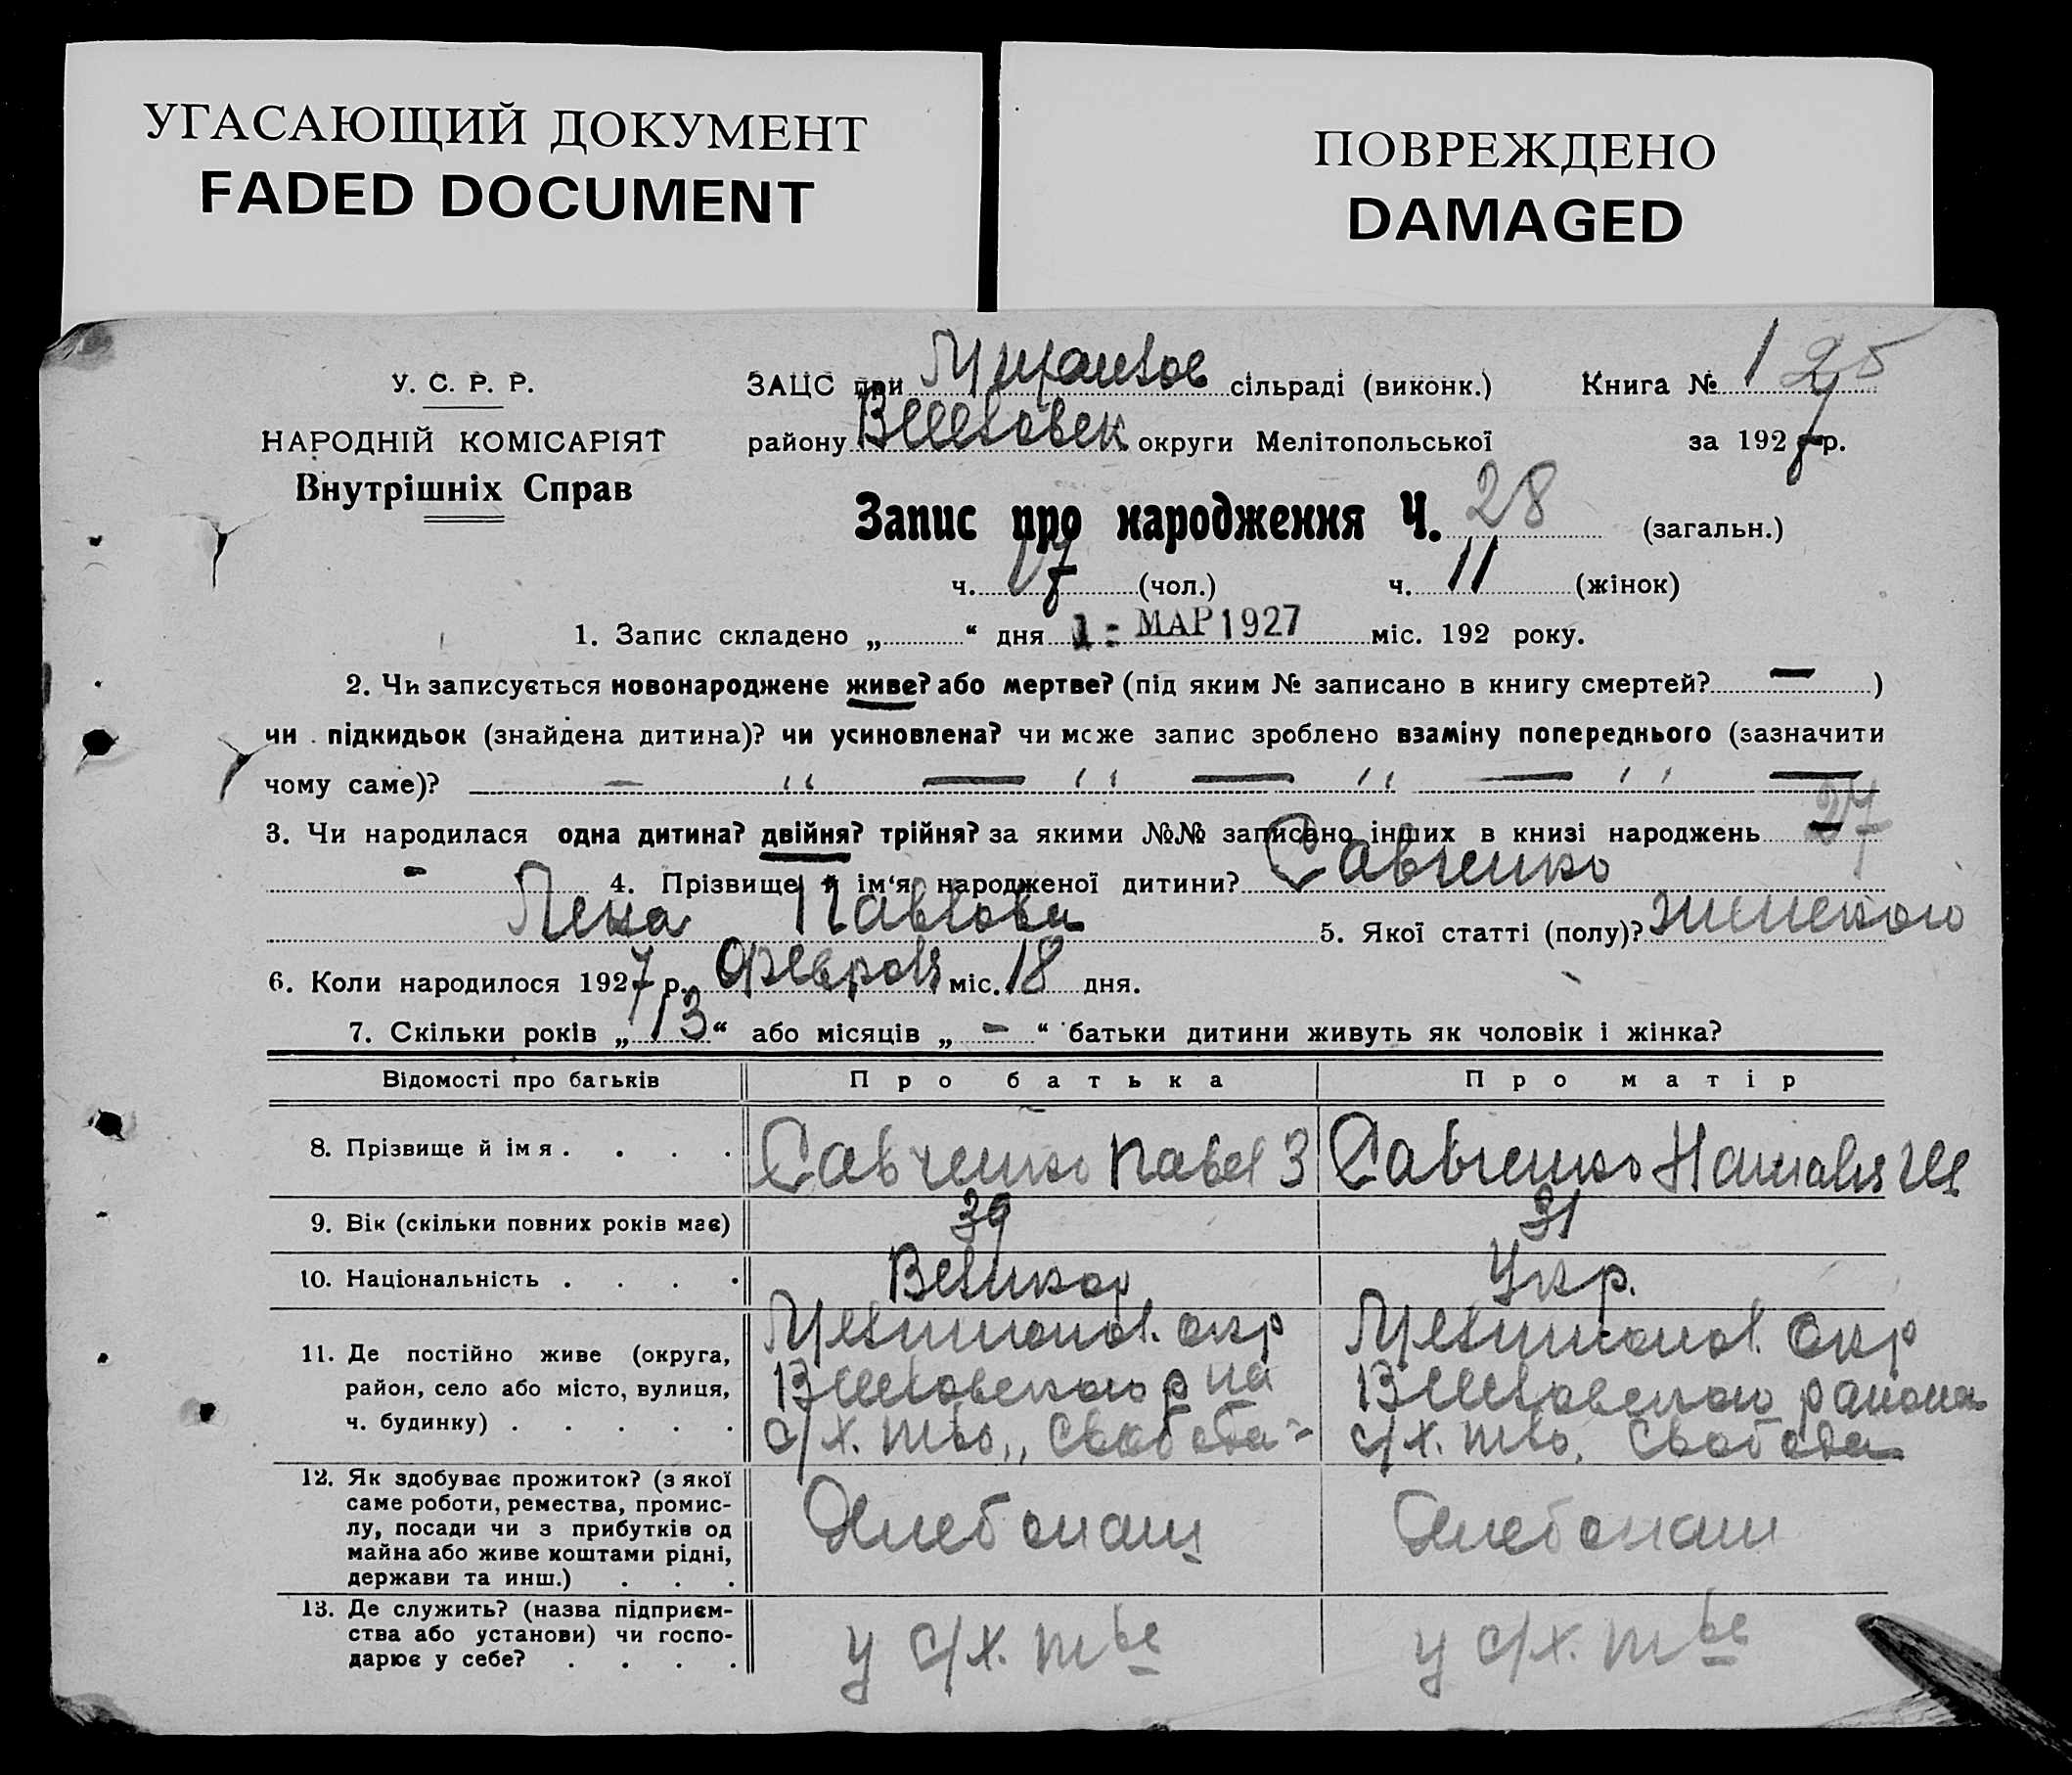 УГАСАЮЩИЙ ДОКУМЕНТ
FADED DOCUMENT
ПОВРЕЖДЕНО
DAMAGED
У. С. Р. Р.
НАРОДНІЙ КОМІСАРІЯТ
Внутрішніх Справ
ЗАЦС при сільраді (виконк.)
району Веселовск округи Мелітопольської
Книга № 1 25
за 1927 р.
Запис про народження Ч. 28 (загальн.)
ч. 17 (чол.) ч. 11 (жінок)
1. Запис складено „ “ дня 1 - МАР 1927 міс. 192 року.
2. Чи записується новонароджене живе? або мертве? (під яким № записано в книгу смертей? — )
чи підкидьок (знайдена дитина)? чи усиновлена? чи може запис зроблено взаміну попереднього (зазначити
чому саме)? — " — " — " — " —
3. Чи народилася одна дитина? двійня? трійня? за якими №№ записано інших в книзі народжень 27
- 4. Прізвище й ім‘я народженої дитини? Савченко
Лена Павлова 5. Якої статті (полу)? женского
6. Коли народилося 1927 р. Февраля міс. 18 дня.
7. Скільки років „ 13 “ або місяців „ - “ батьки дитини живуть як чоловік і жінка?
Відомості про батьків Про батька Про матір
8. Прізвище й імя . . . . Савченко Павел З Савченко Наталия
9. Вік (скільки повних років має) 39 31
10. Національність . . . . Великор Укр.
11. Де постійно живе (округа,
район, село або місто, вулиця,
ч. будинку) . . . . .
Мелитопол. окр
Веселовского р на
с/х. тво „Свобода"
Мелитопол. окр
Веселовского района
с/х. тво, Свобода
12. Як здобуває прожиток? (з якої
саме роботи, ремества, промис-
лу, посади чи з прибутків од
майна або живе коштами рідні,
держави та инш.) . . .
Хлебопаш
Хлебопаш
13. Де служить? (назва підприєм-
ства або установи) чи госпо-
дарює у себе? . . . .
у с/х. тве
у с/х. тве